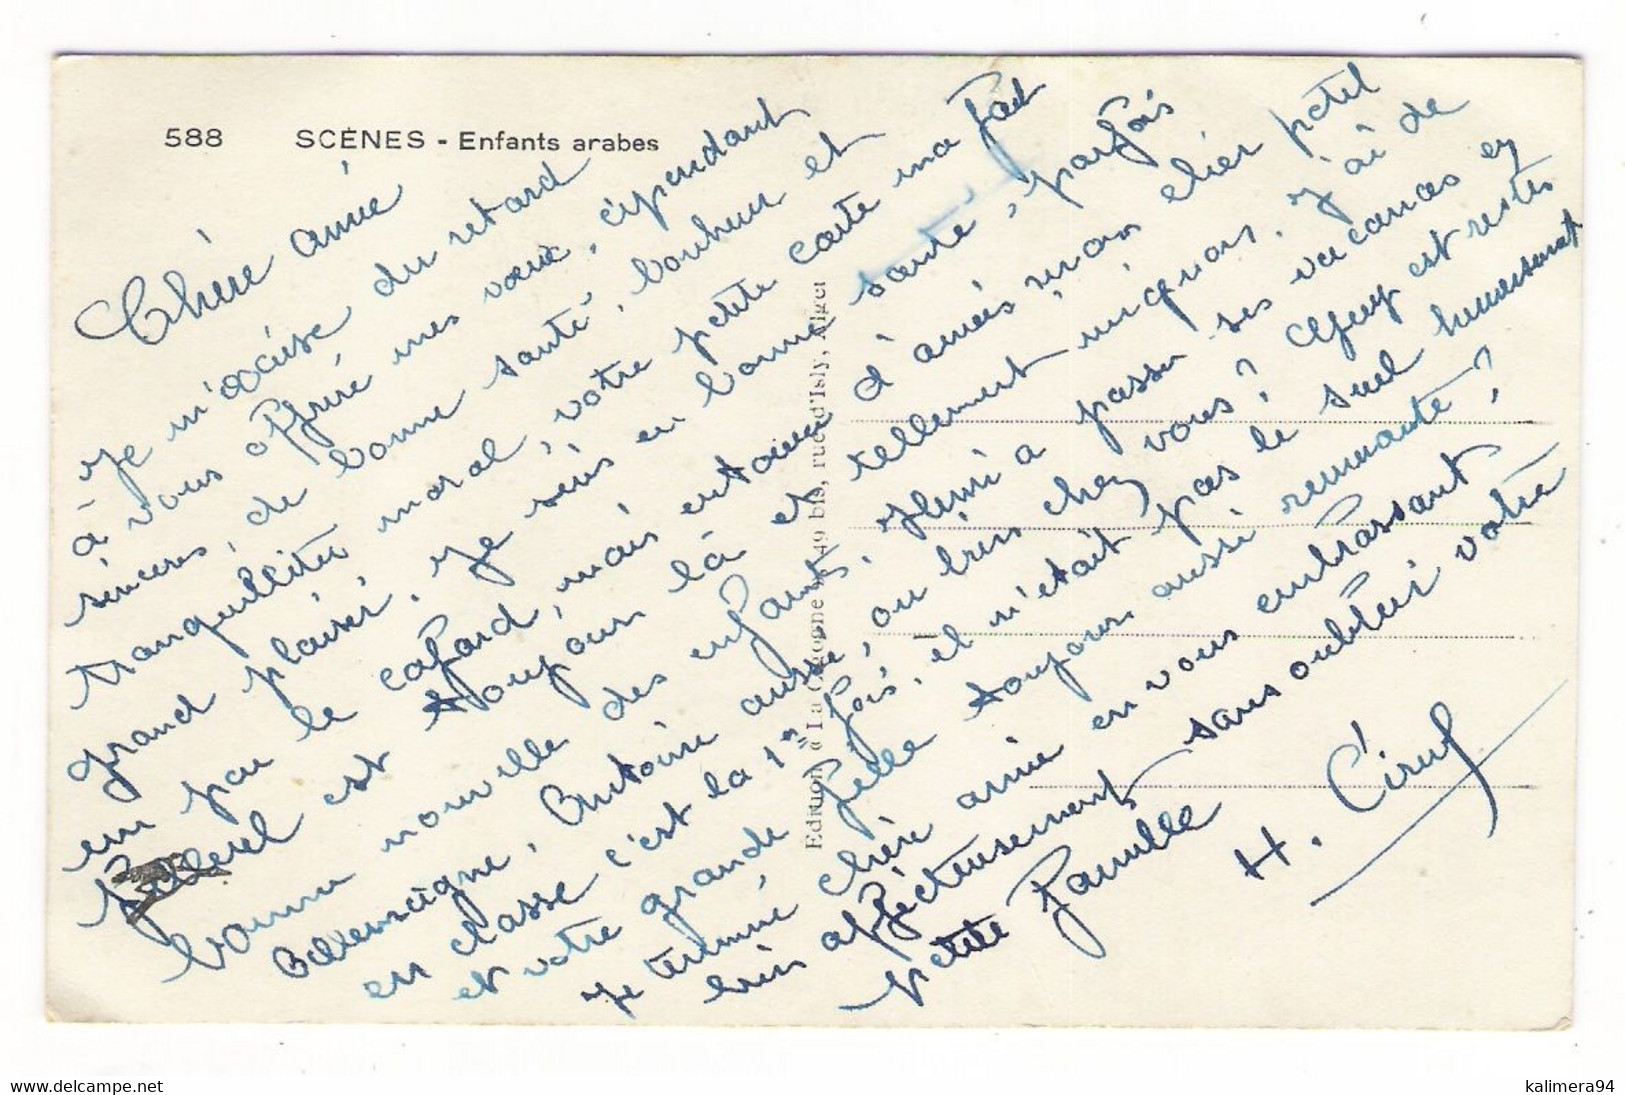 588 SCÈNES - Enfants arabes
Chère amie
Je m'excuse du retard
à vous offrir mes vœux, cependant
sincères, de bonne santé, bonheur et
tranquillité moral, votre petite carte ma fait
grand plaisir. Je suis en bonne santé, parfois
un peu le cafard, mais entourée d'amies, mon chier petit
est toujours là et tellement mignon. J'ai de
bonne nouvelle des enfants, Henri a passer ses vacances en
Allemaigne, Antoine aussi, ou bien chez vous? est restés
en classe c'est la 1er fois, et n'était pas le seul heureusement
et votre grande fille toujours aussi remuante?
Je terminé chère amie en vous embrassant
bien affectueusement sans oublier votre
petite famille
H. Ciruf
Edition "La Cigogne" 49 bis, rue d'Isly, Alger
www.delcampe.net
kalimera94